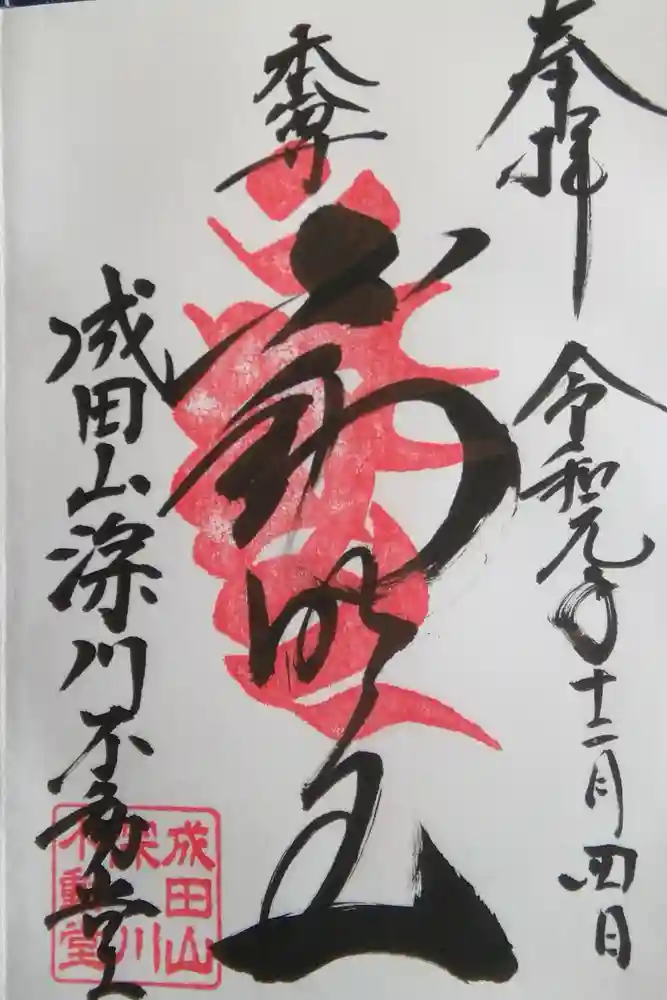 奉拝 令和元年十二月四日
本尊
不動明王
成田山深川不動堂
成田山
深川
不動堂